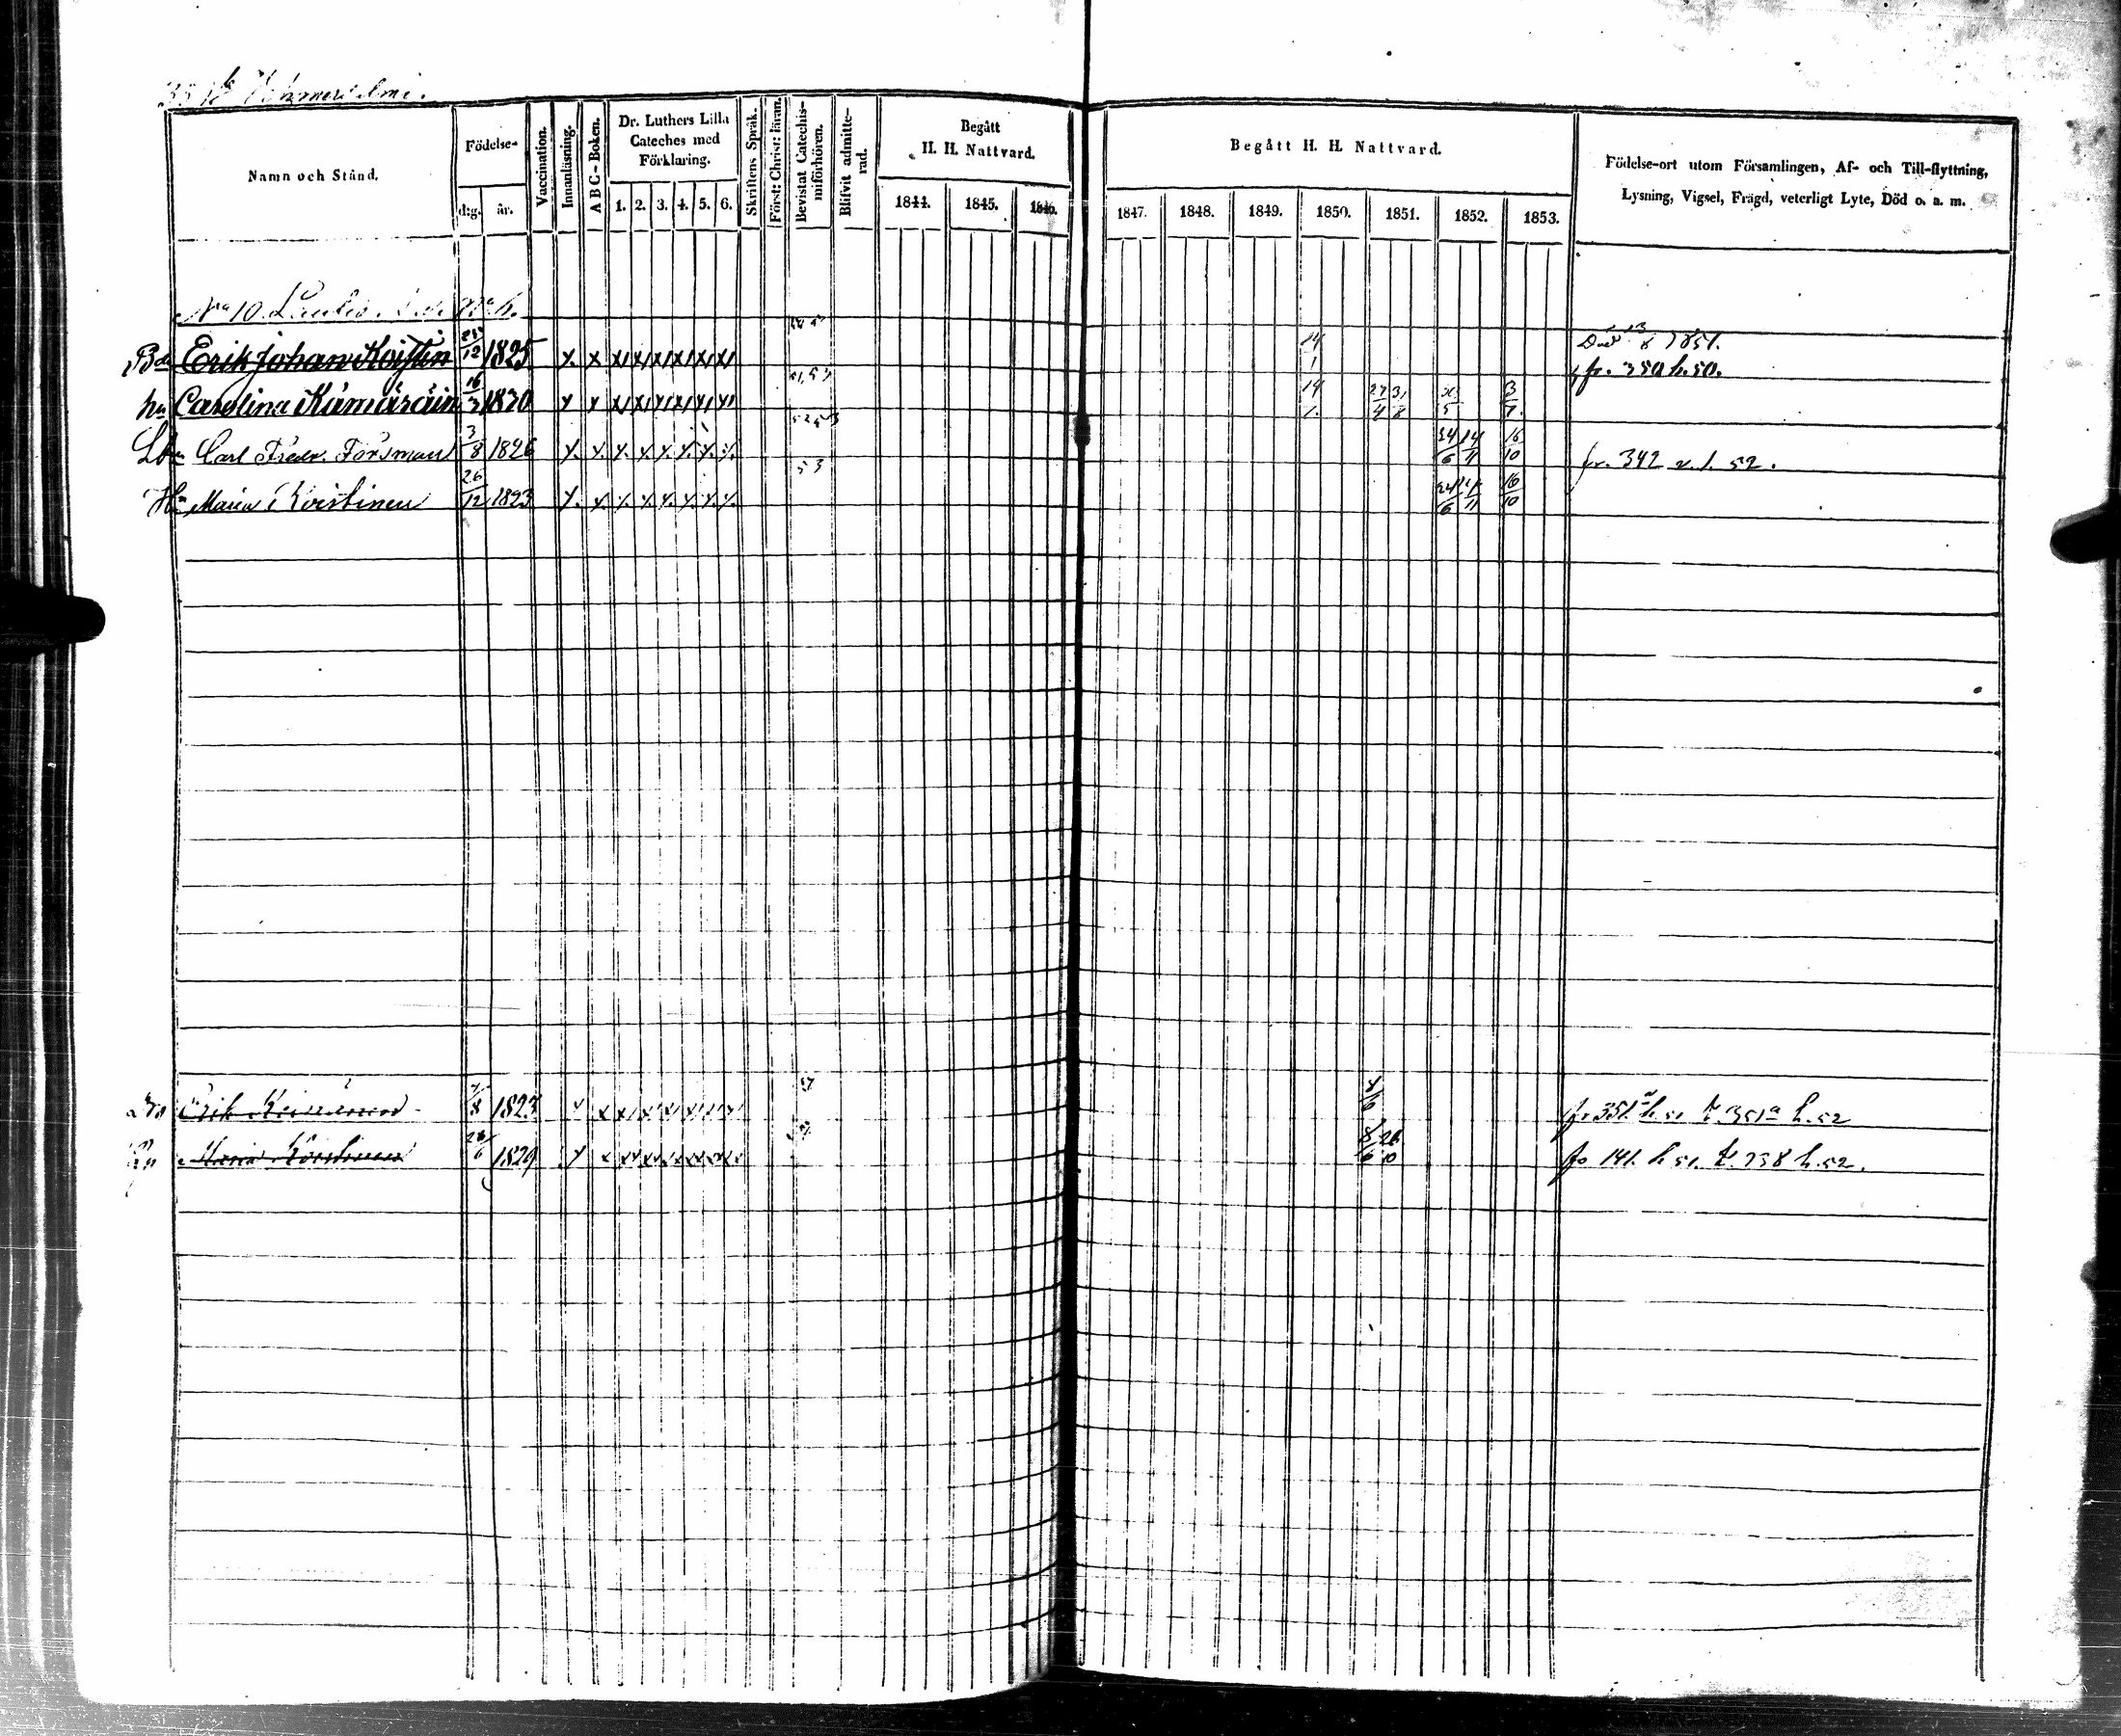 Namn och Stånd.
Födelse-
d:g. år.
Vaccination.
Innanläsning.
A B C-Boken.
Dr. Luthers Lilla Cateches med Förklaring.
1. 2. 3. 4. 5. 6.
Skriftens Språk.
Först: Christ: läran.
Bevistat Catechismiförhören.
Blifvit admitterad.
Begått H. H. Nattvard.
1844. 1845. 1846.
Begått H. H. Nattvard.
1847. 1848. 1849. 1850. 1851. 1852. 1853.
Födelse-ort utom Församlingen, Af- och Till-flyttning,
Lysning, Vigsel, Frägd, veterligt Lyte, Död o. a. m.
No 10.
Erik Johan 25/12 1825 x. x x x x x x x 14/1 1851.
fr. 350 h. 50.
hu Carolina Kämäräin 16/3 1830 x x x x x x x x 51,53 14/1. 27/4 31/8 3/7.
Carl Fredr. Forsman 3/8 1826 x. x. x. x. x. x. x. x. 24/6 14/11 16/10 fr. 342 v. 1. 52.
Hu Maria Koistinen 26/12 1823 x. x. x. x. x. x. x. x. 53 24/6 14/11 16/10
Erik 1823 x x x x x x x x fr 351 h. 51 t. 351a h. 52
Maria Koistinen 1829 x x x x x x x x 8/6 26/10 fr 141. h 51. t. 358 h. 52.